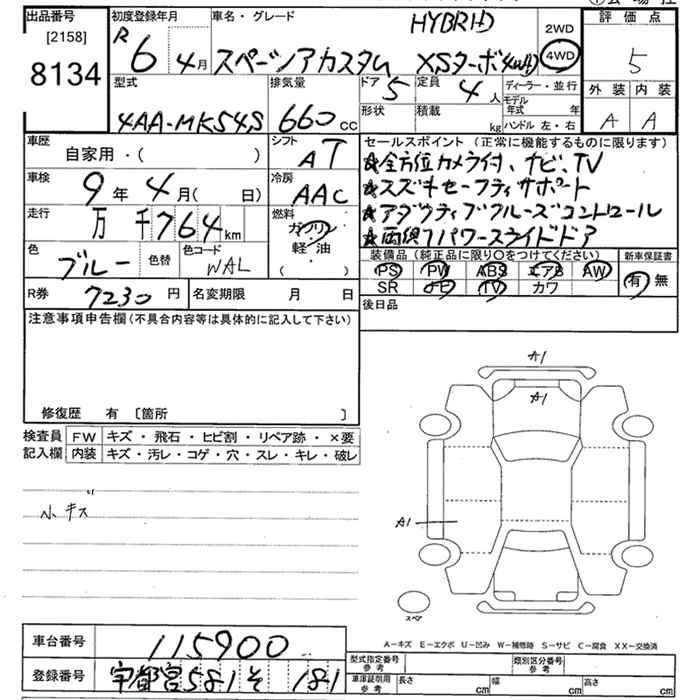 出品番号
[2158]
8134
初度登録年月
R 6年 4月
車名・グレード
HYBRID
スペーシアカスタム XSターボ 4WD
2WD
4WD
評価点
5
外装 内装
A A
型式
4AA-MK54S
排気量
660 cc
ドア 5
定員 4人
形状
積載 kg
ディーラー・並行
モデル年式 年
ハンドル 左・右
車歴
自家用・( )
シフト
AT
車検
9年 4月( 日)
冷房
AAC
走行
万 千 764 km
燃料
ガソリン
軽・油
( )
色
ブルー
色替
色コード
WAL
R券 7230円
名変期限 月 日
セールスポイント(正常に機能するものに限ります)
★全方位カメラ付、ナビ、TV
★スズキセーフティサポート
★アダプティブクルーズコントロール
★両側パワースライドドア
装備品(純正品に限り○をつけてください)
PS PW ABS エアB AW
SR ナビ TV カワ
新車保証書
有 無
後日品
注意事項申告欄(不具合内容等は具体的に記入して下さい)
修復歴 有 〔箇所 〕
検査員記入欄
FW キズ・飛石・ヒビ割・リペア跡・×要
内装 キズ・汚レ・コゲ・穴・スレ・キレ・破レ
小キズ
A1
A1
A1
スペア
A=キズ E=エクボ U=凹み W=補修跡 S=サビ C=腐食 XX=交換済
車台番号 115900
登録番号 宇都宮 581 そ 181
型式指定番号 参考
類別区分番号 参考
車庫証明用 参考
長さ cm
幅 cm
高さ cm